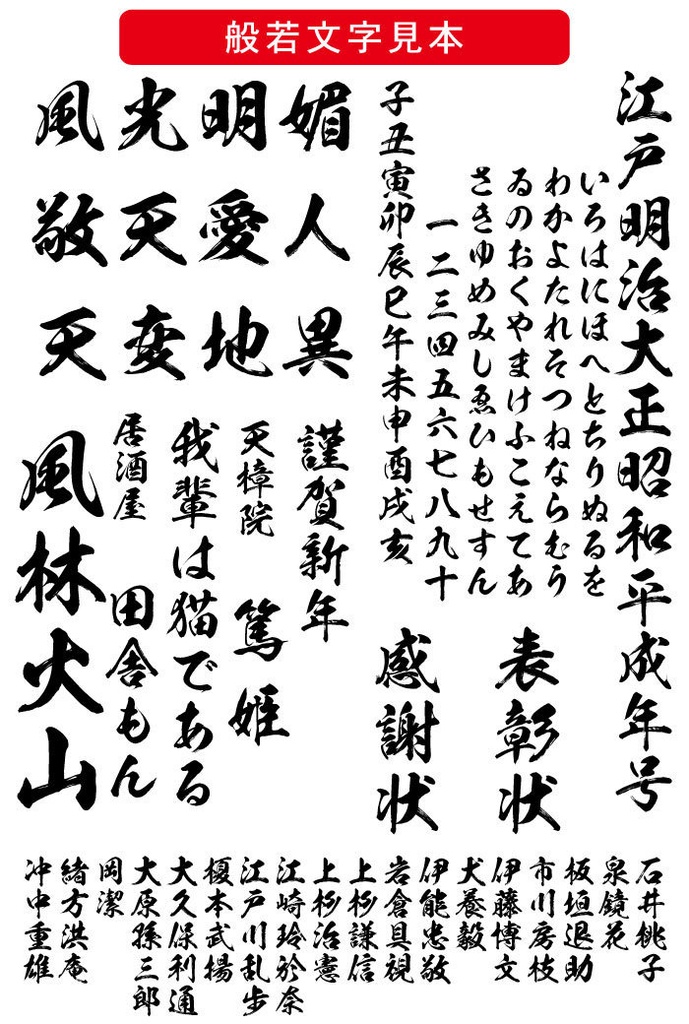 般若文字見本
江戸明治大正昭和平成年号
いろはにほへとちりぬるを
わかよたれそつねならむう
ゐのおくやまけふこえてあ
さきゆめみしゑひもせすん
一二三四五六七八九十
子丑寅卯辰巳午未申酉戌亥
表彰状
感謝状
風光明媚
敬天愛人
天変地異
謹賀新年
天樟院 篤姫
我輩は猫である
居酒屋 田舎もん
風林火山
石井桃子
泉鏡花
板垣退助
市川房枝
伊藤博文
犬養毅
伊能忠敬
岩倉具視
上杉謙信
上杉治憲
江崎玲於奈
江戸川乱歩
榎本武揚
大久保利通
大原孫三郎
岡潔
緒方洪庵
沖中重雄